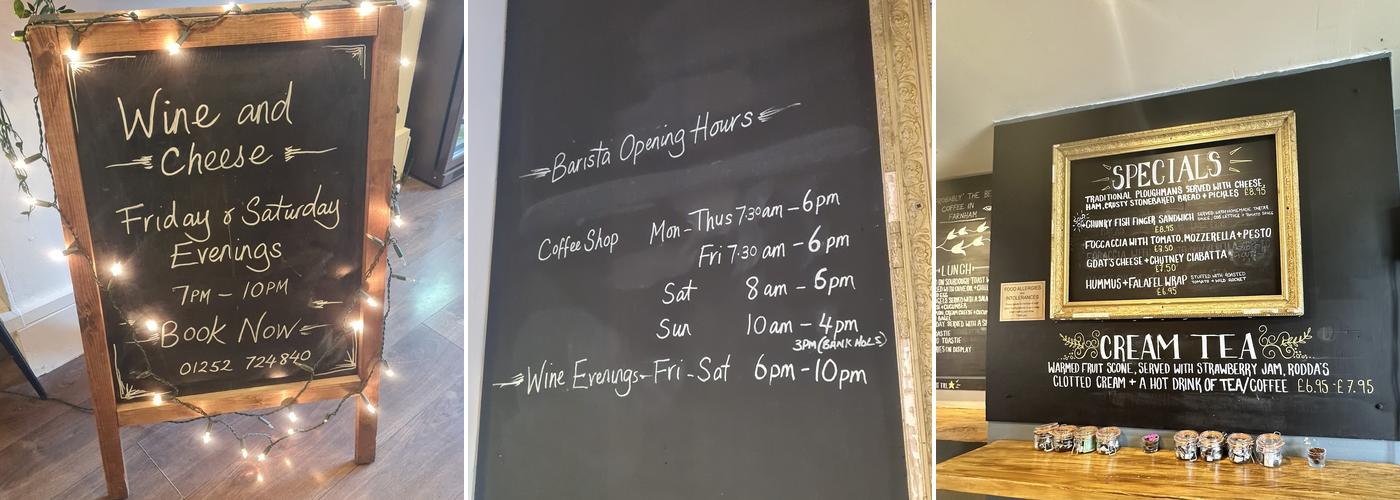 Wine and
Cheese
Friday & Saturday
Evenings
7PM - 10PM
Book Now
01252 724840
Barista Opening Hours
Coffee Shop Mon-Thus 7.30am - 6pm
Fri 7.30 am - 6 pm
Sat 8 am - 6pm
Sun 10 am - 4pm
3PM (BANK HOLS)
Wine Evenings - Fri - Sat 6pm - 10pm
PROBABLY THE BE
COFFEE IN
FARNHAM
LUNCH
FOOD ALLERGIES
INTOLERANCES
SPECIALS
TRADITIONAL PLOUGHMANS SERVED WITH CHEESE,
HAM, CRUSTY STONEBAKED BREAD + PICKLES £8.95
CHUNKY FISH FINGER SANDWICH SERVED WITH HOMEMADE TARTAR
SAUCE, COS LETTUCE + TOMATO SAUCE
£8.95
FOCCACCIA WITH TOMATO, MOZZERELLA + PESTO
£7.50
GOATS CHEESE + CHUTNEY CIABATTA
£7.50
HUMMUS + FALAFEL WRAP STUFFED WITH ROASTED
TOMATO + WILD ROCKET
£6.95
CREAM TEA
WARMED FRUIT SCONE, SERVED WITH STRAWBERRY JAM, RODDA'S
CLOTTED CREAM + A HOT DRINK OF TEA/COFFEE £6.95 - £7.95